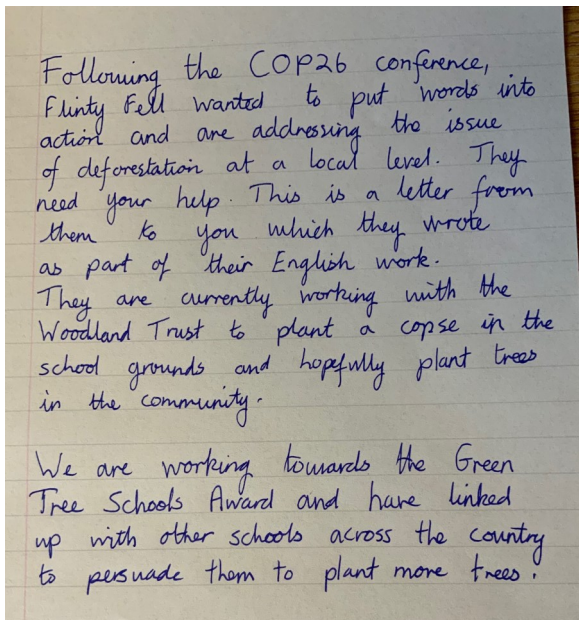 Following the COP26 conference,
Flinty Fell wanted to put words into
action and are addressing the issue
of deforestation at a local level. They
need your help. This is a letter from
them to you which they wrote
as part of their English work.
They are currently working with the
Woodland Trust to plant a copse in the
school grounds and hopefully plant trees
in the community.
We are working towards the Green
Tree Schools Award and have linked
up with other schools across the country
to persuade them to plant more trees.